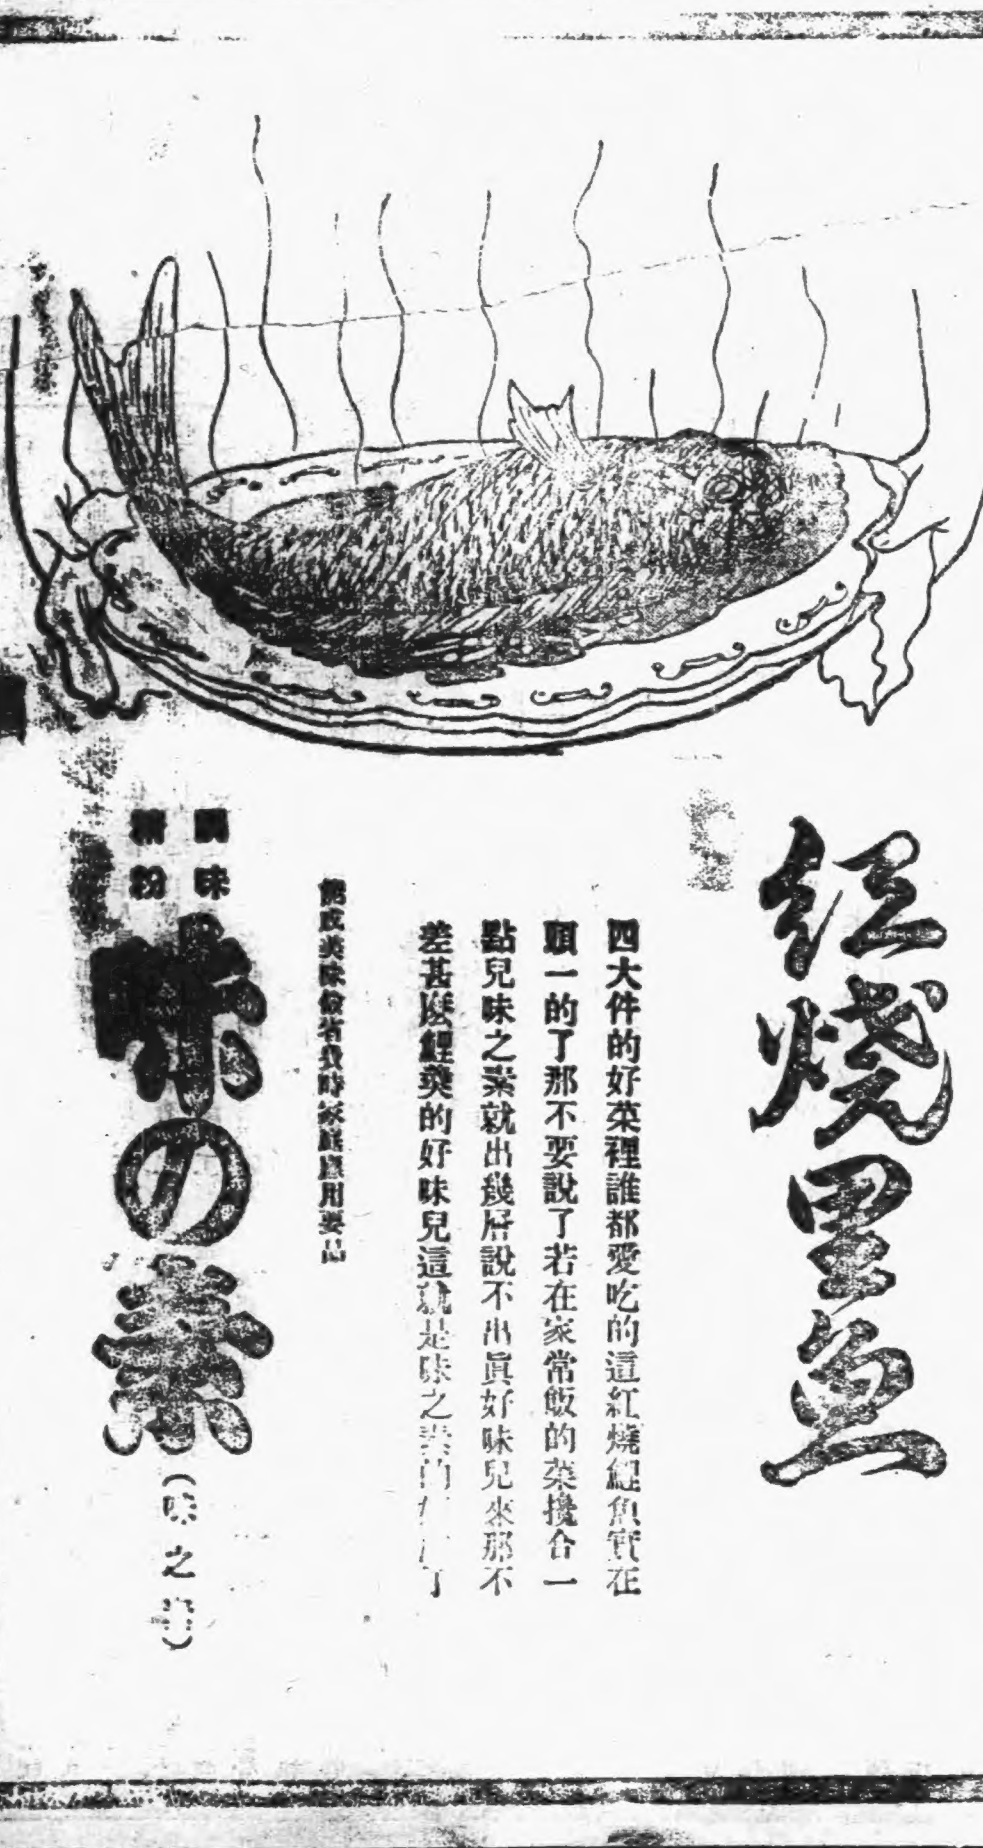 紅燒里魚
四大件的好菜裡誰都愛吃的這紅燒鯉魚實在
頭一的了那不要說了若在家常飯的菜攙合一
點兒味之素就出幾層說不出眞好味兒來那不
差甚麼鯉羹的好味兒這就是味之素的
能成美味儉省費時家庭應用要品
調味
精粉
味の素
(味之素)